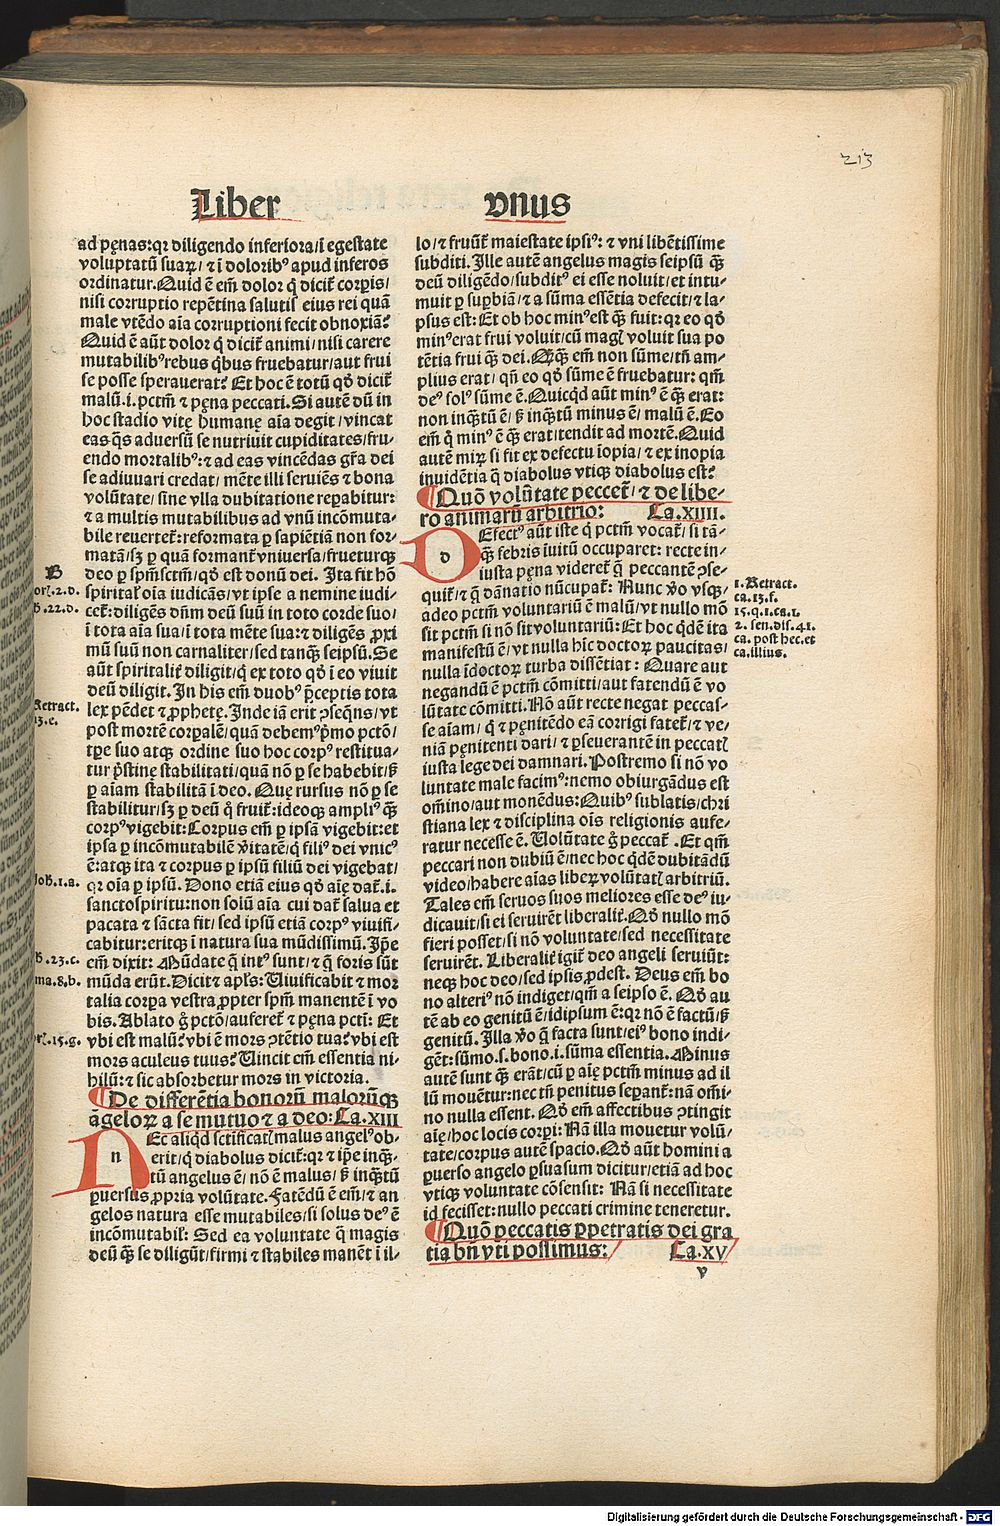 213
Liber vnus
ad pęnas: qꝛ diligendo inferiora/ī egestate
voluptatū suaꝝ/⁊ ī doloribꝰ apud inferos
ordinatur. Quid ē em̄ dolor q̄ dicit᷑ corpis/
nisi corruptio repētina salutis eius rei quā
male vtēdo aīa corruptioni fecit obnoxiā?
Quid ē aūt dolor q̄ dicit᷑ animi/nisi carere
mutabilibꝰ rebus qͥbus fruebatur/aut frui
se posse sperauerat? Et hoc ē totū qð dicit᷑
malū.i. pctm̄ ⁊ pęna peccati. Si autē dū in
hoc stadio vitę humanę aīa degit/vincat
eas q̄s aduersū se nutriuit cupiditates/fru-
endo mortalibꝰ: ⁊ ad eas vincēdas gr̄a dei
se adiuuari credat/mēte illi seruiēs ⁊ bona
volūtate/sine vlla dubitatione repabitur:
⁊ a multis mutabilibus ad vnū incōmuta-
bile reuertet᷑: reformata ꝑ sapiētiā non for-
matā/sꝫ ꝑ quā formant᷑ vniuersa/frueturqꝫ
deo ꝑ spm̄sctm̄/qð est donū dei. Ita fit hō
spirital᷑ oīa iudicās/vt ipse a nemine iudi-
cet᷑: diligēs dn̄m deū suū in toto corde suo/
ī tota aīa sua/ī tota mēte sua: ⁊ diligēs ꝓxi
mū suū non carnaliter/sed tanqꝫ seipsū. Se
aūt spiritalit᷑ diligit/q̄ ex toto qð ī eo viuit
deū diligit. In his em̄ duobꝰ p̄ceptis tota
lex pēdet ⁊ ꝓphetę. Inde iā erit ꝯseqn̄s/vt
post mortē corpalē/quā debemꝰ pͥmo pctō/
tꝑe suo atqꝫ ordine suo hoc corpꝰ restitua-
tur pͥstinę stabilitati/quā nō ꝑ se habebit/ß
ꝑ aīam stabilitā ī deo. Quę rursus nō ꝑ se
stabilitur/sꝫ ꝑ deū q̄ fruit᷑: ideoqꝫ ampliꝰ qꝫ
corpꝰ vigebit: Corpus em̄ ꝑ ipsā vigebit: et
ipsa ꝑ incōmutabilē v̄itatē/q̄ filiꝰ dei vnicꝰ
ē: atqꝫ ita ⁊ corpus ꝑ ipsū filiū dei vigebat/
qꝛ oīa ꝑ ipsū. Dono etiā eius qð aīę dat᷑.i.
sanctospiritu: non solū aīa cui dat᷑ salua et
pacata ⁊ sācta fit/sed ipsū etiā corpꝰ viuifi-
cabitur: eritqꝫ ī natura sua mūdissimū. Ip̄e
em̄ dixit: Mūdate q̄ intꝰ sunt/⁊ q̄ foris sūt
mūda erūt. Dicit ⁊ apl̄s: Viuificabit ⁊ mor
talia corpa vestra ꝓpter spm̄ manentē ī vo
bis. Ablato g̊ pctō/auferet᷑ ⁊ pęna pcti: Et
vbi est malū? vbi ē mors ꝯtētio tua? vbi est
mors aculeus tuus? Vincit em̄ essentia ni-
hilū: ⁊ sic absorbetur mors in victoria.
¶De differētia honorū malorūqꝫ
āgeloꝝ a se mutuo ⁊ a deo: Ca.XIII
NEc aliqͥd sctificat᷑ malus angelꝰ ob-
erit/q̄ diabolus dicit᷑: qꝛ ⁊ ip̄e inqꝫ-
tū angelus ē/nō ē malus/ß inqꝫtū
ꝑuersus ꝓpria volūtate. Fatēdū ē em̄/⁊ an
gelos natura esse mutabiles/si solus deꝰ ē
incōmutabil᷑: Sed ea voluntate q̄ magis
deū qꝫ se diligūt/firmi ⁊ stabiles manēt ī il-
B
orͥ.2.d.
ß.22.d.
Retract.
13.e.
Joh.1.a.
ß.23.c.
ma.8.b.
rͥ.15.g.
lo/⁊ fruūt᷑ maiestate ipsiꝰ: ⁊ vni libētissime
subditi. Ille autē angelus magis seipsū qꝫ
deū diligēdo/subditꝰ ei esse noluit/et intu-
muit ꝑ supbiā/⁊ a sūma essētia defecit/⁊ la-
psus est: Et ob hoc minꝰ est qꝫ fuit: qꝛ eo qð
minꝰ erat frui voluit/cū magͥ voluit sua po
tētia frui qꝫ dei. Qͥqꝫ em̄ non sūme/tn̄ am-
plius erat/qn̄ eo qð sūme ē fruebatur: qm̄
deꝰ solꝰ sūme ē. Quicqͥd aūt minꝰ ē qꝫ erat:
non inqꝫtū ē/ß inqꝫtū minus ē/malū ē. Eo
em̄ q̄ minꝰ ē qꝫ erat/tendit ad mortē. Quid
autē miꝝ si fit ex defectu īopia/⁊ ex inopia
inuidētia q̄ diabolus vtiqꝫ diabolus est?
¶Quō volūtate peccet᷑/⁊ de libe-
ro animarū arbitrio: Ca.XIIII.
DEfectꝰ aūt iste q̄ pctm̄ vocat᷑/si tā-
qꝫ febris īuitū occuparet: recte in-
iusta pęna videret᷑ q̄ peccantē ꝯse-
quit᷑/⁊ q̄ dānatio nūcupat᷑: Nunc v̊o vsqꝫ
adeo pctm̄ voluntariū ē malū/vt nullo mō
sit pctm̄ si nō sit voluntariū: Et hoc qͥdē ita
manifestū ē/vt nulla hīc doctoꝝ paucitas/
nulla īdoctoꝝ turba dissētiat: Quare aut
negandū ē pctm̄ cōmitti/aut fatendū ē vo
lūtate cōmitti. Nō aūt recte negat peccas-
se aīam/q̄ ⁊ pęnitēdo eā corrigi fatet᷑/⁊ ve-
niā pęnitenti dari/⁊ ꝑseuerantē in peccatͥ
iusta lege dei damnari. Postremo si nō vo
luntate male facimꝰ: nemo obiurgādus est
om̄ino/aut monēdus: Quibꝰ sublatis/chri
stiana lex ⁊ disciplina oīs religionis aufe-
ratur necesse ē. Volūtate g̊ peccat᷑. Et qm̄
peccari non dubiū ē/nec hoc qͥdē dubitādū
video/habere aīas libeꝝ volūtatͥ arbitriū.
Tales em̄ seruos suos meliores esse deꝰ iu-
dicauit/si ei seruirēt liberalit᷑. Qð nullo mō
fieri posset/si nō voluntate/sed necessitate
seruirēt. Liberalit᷑ igit᷑ deo angeli seruiūt:
neqꝫ hoc deo/sed ipsis ꝓdest. Deus em̄ bo
no alteriꝰ nō indiget/qm̄ a seipso ē. Qð au
tē ab eo genitū ē/idipsum ē: qꝛ nō ē factū/ß
genitū. Illa v̊o q̄ facta sunt/eiꝰ bono indi-
gēt: sūmo.s. bono.i. sūma essentia. Minus
autē sunt qꝫ erāt/cū ꝑ aīę pctm̄ minus ad il
lū mouētur: nec tn̄ penitus sepant᷑: nā om̄i-
no nulla essent. Qð em̄ affectibus ꝯtingit
aīę/hoc locis corpi: Nā illa mouetur volū/
tate/corpus autē spacio. Qð aūt homini a
ꝑuerso angelo ꝑsuasum dicitur/etiā ad hoc
vtiqꝫ voluntate cōsensit: Nā si necessitate
id fecisset: nullo peccati crimine teneretur.
¶Quō peccatis ꝑpetratis dei gra
tia bn̄ vti possimus: Ca.XV
v
1. Retract.
ca.13.f.
15.q.1.ca.1.
2. sen.dis.41.
ca. post hec. et
ca.illius.
Digitalisierung gefördert durch die Deutsche Forschungsgemeinschaft - DFG